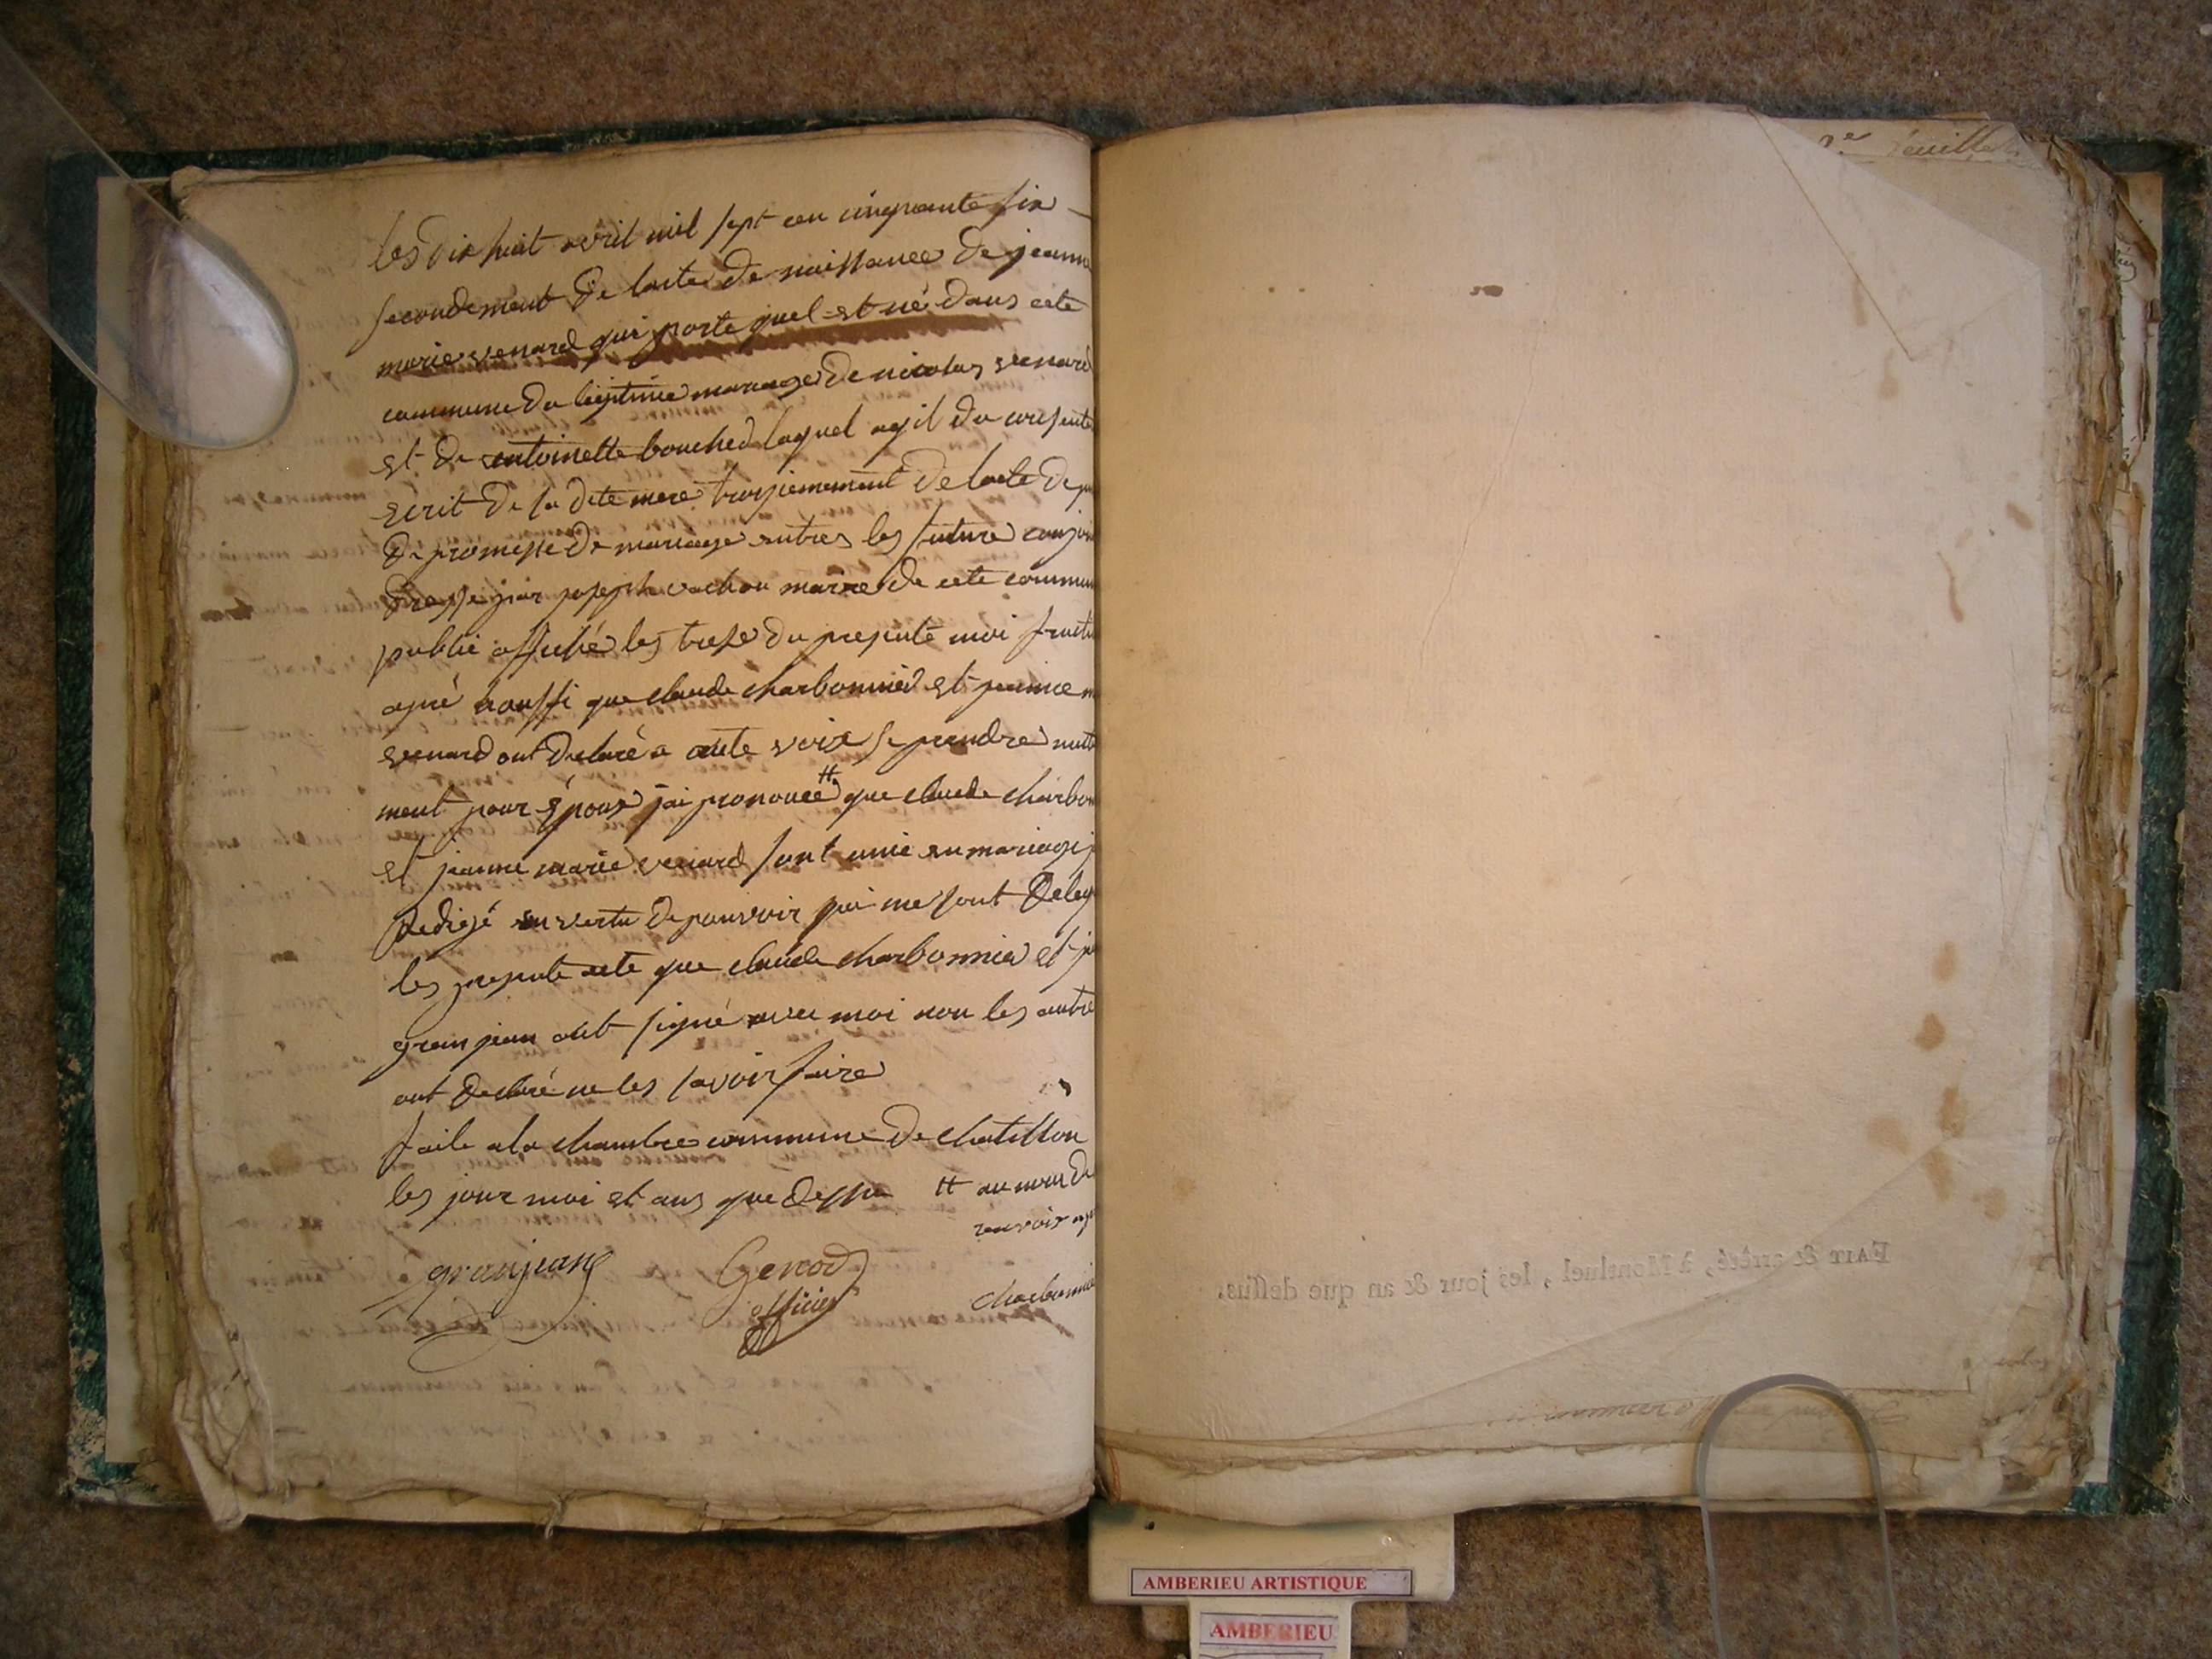 les dix huit avril mil sept cen cinquante six
secondement de lacte de naissance de jeanne
marie venard qui porte quel est né dans cete
commune du légitime mariage de nicolas venard
et de entoinette bouched laquel agit du consente
ecrit de sa dite mere troysiemement de lacte de
de promesse de mariage entres les future conjoin
dresse par joseph vachon maire de cete commun
publié affiché les trese du presente moi fructi
apré aussi que claude charbonnier et jeanne m
venard ont declaré a aute voix se prendre mute
ment pour épous jai pronouce # que claude charbon
et jeanne marie venard sont unie en mariage j
redigé en vertu de pouvoir qui me sont deleg
les presente acte que claude charbonnier et
granjean ont signé avec moi non les autre
ont declaré ne les savoir faire
faite a la chambre commune de chatillon
les jour moi et ans que dessu # au nom de
granjean Genod
officier
charbonnie
2.e feuillet
FAIT & arrêté, à Montluel, les jour & an que dessus.
AMBERIEU ARTISTIQUE
AMBERIEU